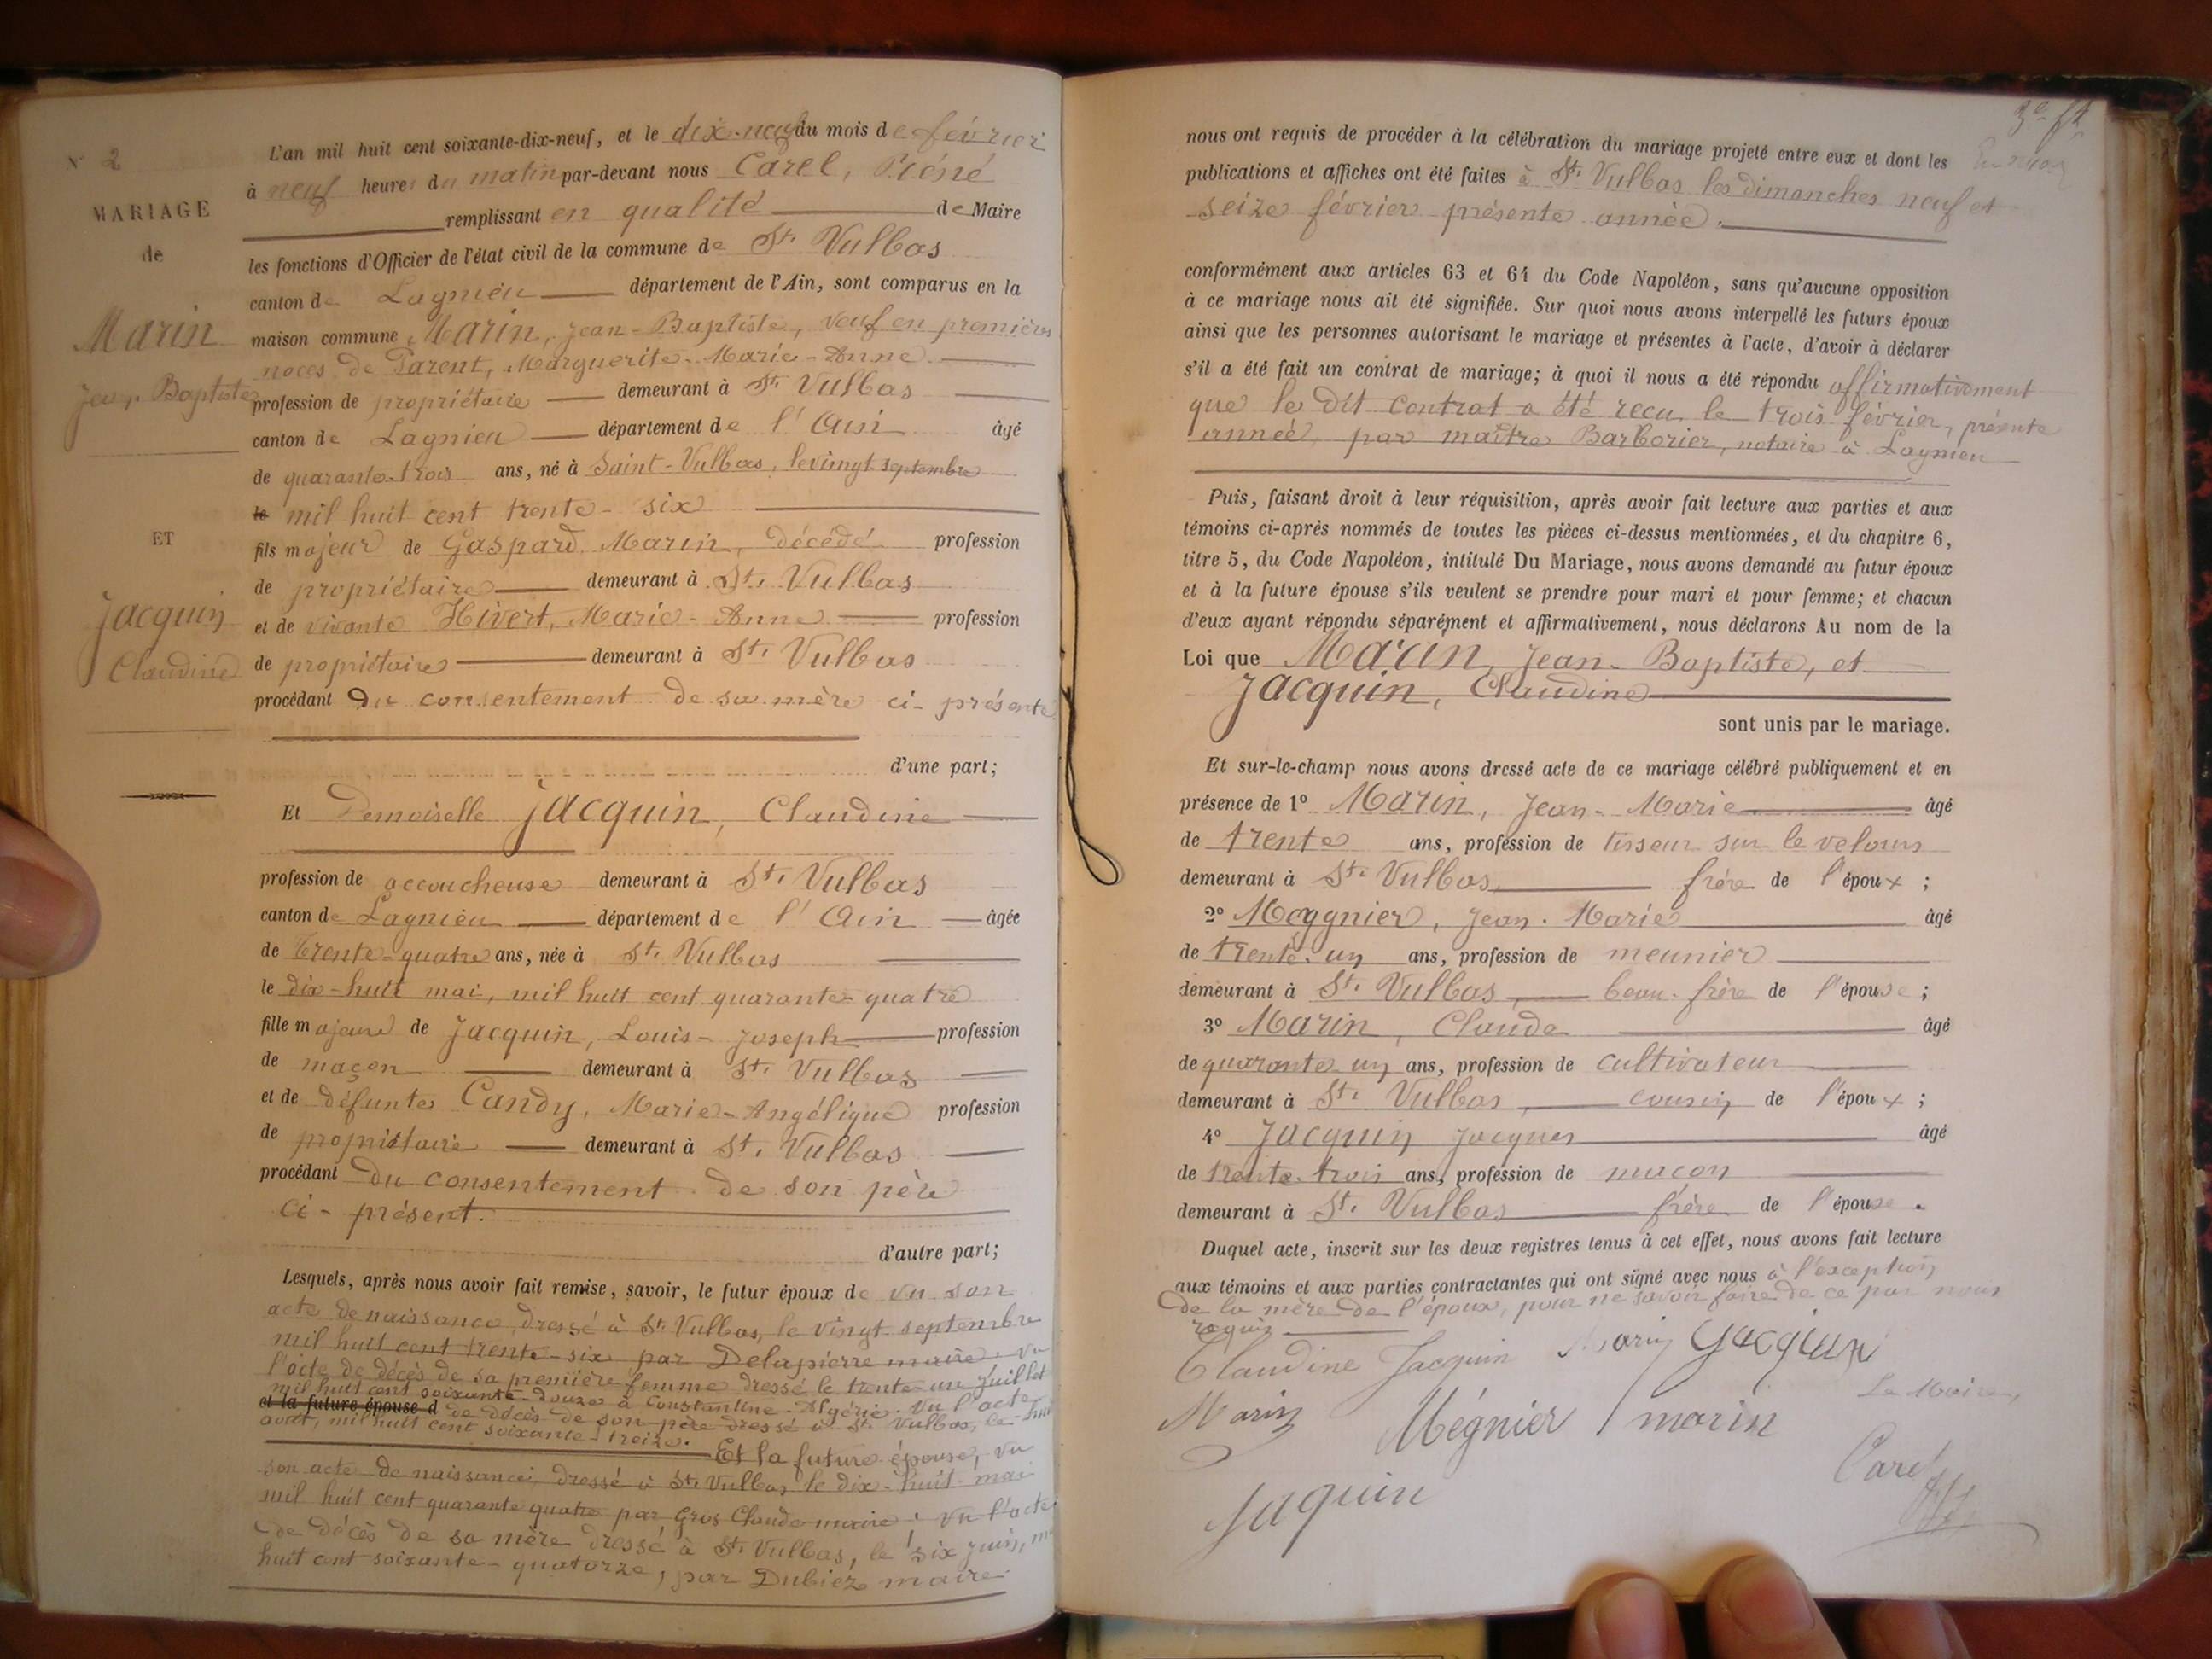 N° 2
MARIAGE
de
Marin
Jean-Baptiste
ET
Jacquin
Claudine
L'an mil huit cent soixante-dix-neuf, et le dix-neuf du mois de février
à neuf heures du matin par-devant nous Carel,
remplissant en qualité de Maire
les fonctions d'Officier de l'état civil de la commune de St. Vulbas
canton de Lagnieu département de l'Ain, sont comparus en la
maison commune Marin, Jean-Baptiste, veuf en premières
noces de Parent, Marguerite-Marie-Anne
profession de propriétaire demeurant à St. Vulbas
canton de Lagnieu département de l'Ain âgé
de quarante-trois ans, né à Saint-Vulbas, le vingt septembre
le mil huit cent trente-six
fils majeur de Gaspard Marin, décédé profession
de propriétaire demeurant à St. Vulbas
et de vivante Hivert, Marie-Anne profession
de propriétaire demeurant à St. Vulbas
procédant du consentement de sa mère ci-présente
d'une part;
Et Demoiselle Jacquin, Claudine
profession de accoucheuse demeurant à St. Vulbas
canton de Lagnieu département de l'Ain âgée
de trente-quatre ans, née à St. Vulbas
le dix-huit mai, mil huit cent quarante-quatre
fille majeure de Jacquin, Louis-Joseph profession
de maçon demeurant à St. Vulbas
et de défunte Candy, Marie-Angélique profession
de propriétaire demeurant à St. Vulbas
procédant du consentement de son père
ci-présent.
d'autre part;
Lesquels, après nous avoir fait remise, savoir, le futur époux de vu son
acte de naissance, dressé à St. Vulbas, le vingt septembre
mil huit cent trente-six par Delapierre maire. Vu
l'acte de décès de sa première femme dressé le trente-un juillet
mil huit cent soixante-douze à Constantine-Algérie. Vu l'acte
et la future épouse d de décès de son père dressé à St. Vulbas, le huit
août, mil huit cent soixante-treize.
Et la future épouse, vu
son acte de naissance, dressé à St. Vulbas le dix-huit mai
mil huit cent quarante quatre par Gros Claude maire; vu l'acte
de décès de sa mère dressé à St. Vulbas, le six juin, mil
huit cent soixante-quatorze, par Dubiez maire
nous ont requis de procéder à la célébration du mariage projeté entre eux et dont les
publications et affiches ont été faites à St. Vulbas les dimanches neuf et
seize février présente année.
conformément aux articles 63 et 64 du Code Napoléon, sans qu'aucune opposition
à ce mariage nous ait été signifiée. Sur quoi nous avons interpellé les futurs époux
ainsi que les personnes autorisant le mariage et présentes à l'acte, d'avoir à déclarer
s'il a été fait un contrat de mariage; à quoi il nous a été répondu affirmativement
que le dit contrat a été reçu le trois février, présente
année, par maître Barborier, notaire à Lagnieu
Puis, faisant droit à leur réquisition, après avoir fait lecture aux parties et aux
témoins ci-après nommés de toutes les pièces ci-dessus mentionnées, et du chapitre 6,
titre 5, du Code Napoléon, intitulé Du Mariage, nous avons demandé au futur époux
et à la future épouse s'ils veulent se prendre pour mari et pour femme; et chacun
d'eux ayant répondu séparément et affirmativement, nous déclarons Au nom de la
Loi que Marin, Jean-Baptiste, et
Jacquin, Claudine
sont unis par le mariage.
Et sur-le-champ nous avons dressé acte de ce mariage célébré publiquement et en
présence de 1° Marin, Jean-Marie âgé
de trente ans, profession de tisseur sur le velours
demeurant à St. Vulbas, frère de l'époux;
2° Moggnier, Jean-Marie âgé
de trente-un ans, profession de meunier
demeurant à St. Vulbas, beau-frère de l'épouse;
3° Marin, Claude âgé
de quarante-un ans, profession de cultivateur
demeurant à St. Vulbas, cousin de l'époux;
4° Jacquin Jacques âgé
de trente-trois ans, profession de maçon
demeurant à St. Vulbas frère de l'épouse.
Duquel acte, inscrit sur les deux registres tenus à cet effet, nous avons fait lecture
aux témoins et aux parties contractantes qui ont signé avec nous à l'exception
de la mère de l'époux, pour ne savoir faire de ce par nous
requis
Claudine Jacquin Marin Jacquin
Le Maire,
Marin Mégnier marin
Carel
Jaquin